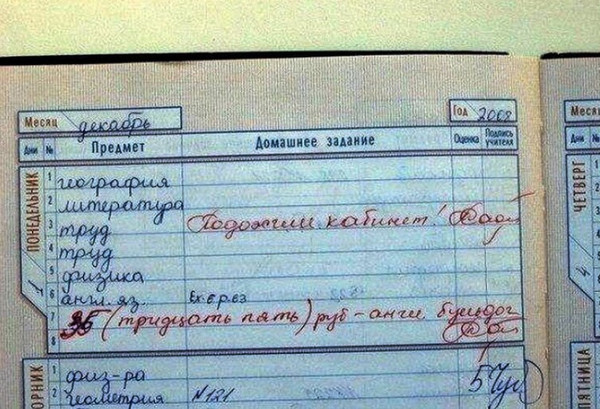 Месяц декабрь Год 2008
Дни № Предмет Домашнее задание Оценка Подпись учителя
ПОНЕДЕЛЬНИК
1 география
2 литература
3 труд Подожгли кабинет!
4 труд
5 физика
6 англ. яз. Ex. 6 p. 63
7 35 (тридцать пять) руб - англ бульдог
8
ОРНИК
1 физ-ра
2 геометрия №121 5
Месяц
Дни №
ЧЕТВЕРГ
4
ПЯТНИЦА